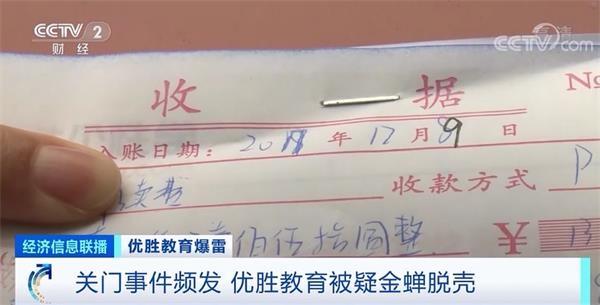 CCTV 2
财经
CCTV.com
收 据
No
入账日期: 年 12 月 9 日
收款方式 P
佰伍拾圆整 ¥ 13
经济信息联播 优胜教育爆雷
关门事件频发 优胜教育被疑金蝉脱壳